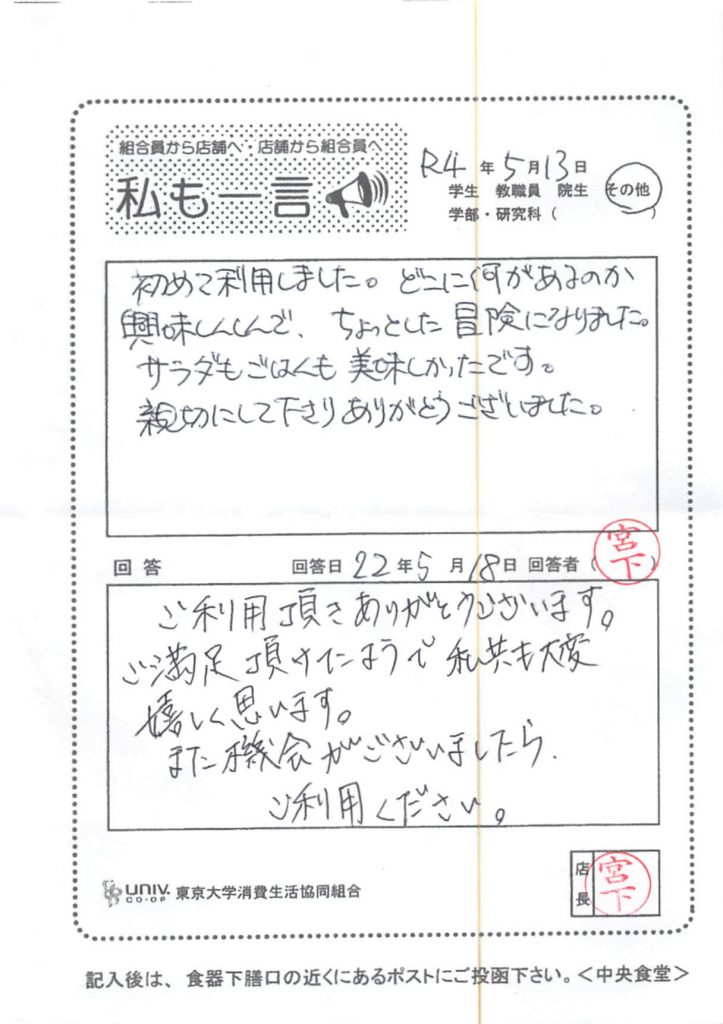 組合員から店舗へ・店舗から組合員へ
私も一言
R4 年 5月13日
学生 教職員 院生 その他
学部・研究科 ( )
初めて利用しました。どこに何があるのか
興味しんしんで、ちょっとした冒険になりました。
サラダもごはんも美味しかったです。
親切にして下さりありがとうございました。
回答 回答日 22年5月18日 回答者 (宮下)
ご利用頂きありがとうございます。
ご満足頂けたようで私共も大変
嬉しく思います。
また機会がございましたら、
ご利用ください。
UNIV. CO-OP 東京大学消費生活協同組合
店長 宮下
記入後は、食器下膳口の近くにあるポストにご投函下さい。<中央食堂>